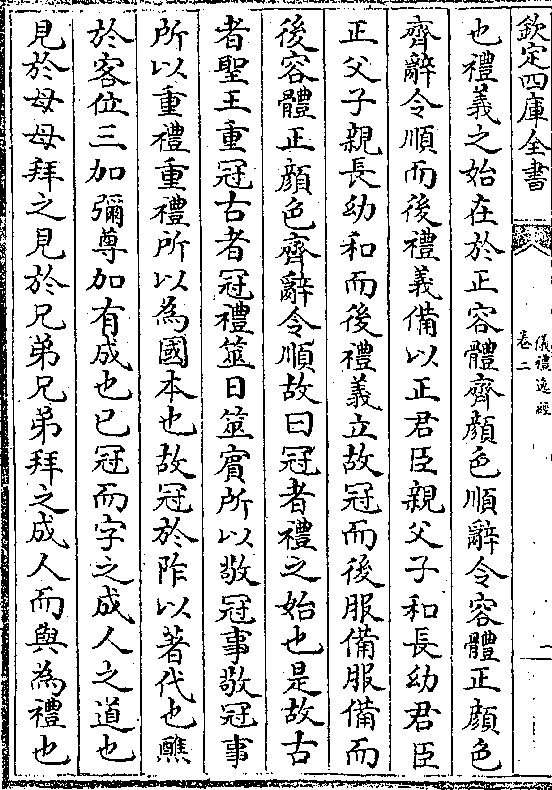 欽定四庫全書
儀禮逸經
卷二
一
也禮義之始在於正容體齊顔色順辭令容體正顔色
齊辭令順而後禮義備以正君臣親父子和長幼君臣
正父子親長幼和而後禮義立故冠而後服備服備而
後容體正顔色齊辭令順故曰冠者禮之始也是故古
者聖王重冠古者冠禮筮日筮賔所以敬冠事敬冠事
所以重禮重禮所以為國本也故冠於阼以著代也醮
於客位三加彌尊加有成也已冠而字之成人之道也
見於母母拜之見於兄弟兄弟拜之成人而與為禮也